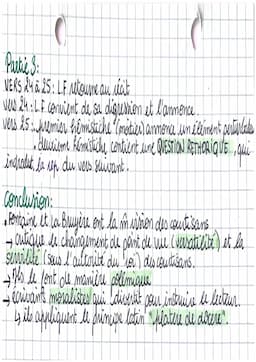 Partie 3:
VERS 24 à 25: LF retourne au récit
vers 24: L.F convient de sa digression et l'annonce.
vers 25: premier hémistiche (moitié) annonce un élément
deuxième hémistiche contient une QUESTION RETHORIQUE, qui
introduit la rép du vers suivant.
Conclusion:
Fontaine et La Bruyère ont la m̂ vision des courtisans
→ critique le changement de point de vue (versatilité) et la
servilité (sous l'autorité du roi) des courtisans.
→ Ils le font de manière polémique
→ écrivains moralistes qui divertit pour instruire le lecteur.
↳ ils appliquent le principe latin "Placere de docere".